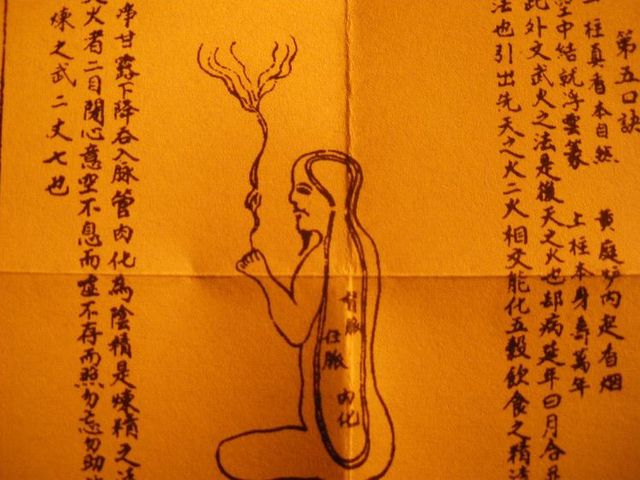 第五口訣
炷真香本自然 黃庭炉内起香烟
空中結就浮雲篆 上炷本身壽萬年
此外文武火之法是後天之火也却病延年曰月合
法也引出先天之火二火相交能化五穀飲食之精
督脈
任脈
肉化
净甘露下降吞入脉管肉化為陰精是煉精之法
火者二目閉心意空不息而虚不存而照勿忘勿助
煉之武二文七也